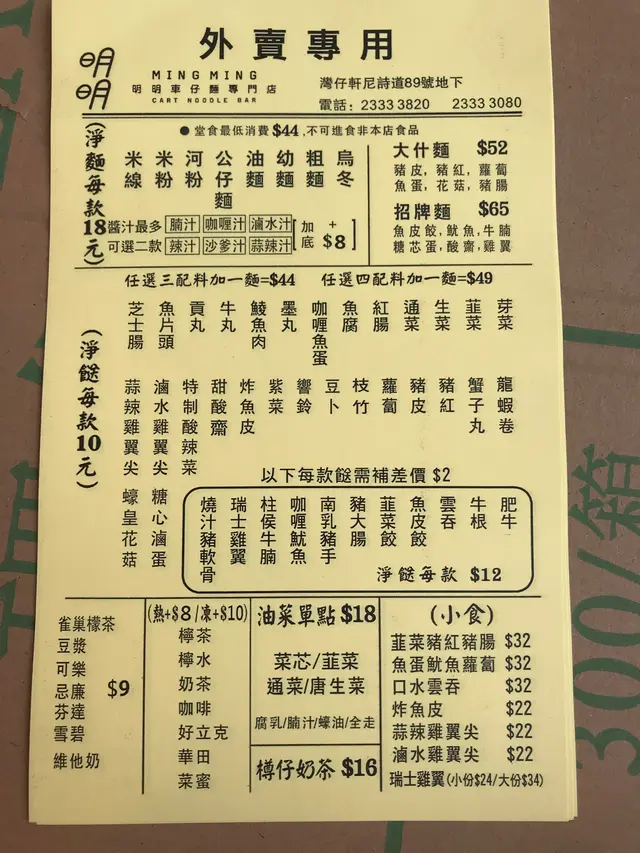 外賣專用
明明
MING MING
明明車仔麵專門店
CART NOODLE BAR
灣仔軒尼詩道89號地下
電話：2333 3820 2333 3080
●堂食最低消費$44,不可進食非本店食品
(淨麵每款18元)
烏冬
粗麵
幼麵
油麵
公仔麵
河粉
米粉
米線
醬汁最多可選二款
腩汁 咖喱汁 滷水汁
辣汁 沙爹汁 蒜辣汁
加底 +$8
大什麵 $52
豬皮,豬紅,蘿蔔
魚蛋,花菇,豬腸
招牌麵 $65
魚皮餃,魷魚,牛腩
糖芯蛋,酸齋,雞翼
任選三配料加一麵=$44 任選四配料加一麵=$49
(淨餸每款10元)
芽菜
韮菜
生菜
通菜
紅腸
魚腐
咖喱魚蛋
墨丸
鯪魚肉
牛丸
貢丸
魚片頭
芝士腸
龍蝦卷
蟹子丸
豬紅
豬皮
蘿蔔
枝竹
豆卜
響鈴
紫菜
炸魚皮
甜酸齋
特制酸辣菜
滷水雞翼尖
蒜辣雞翼尖
糖心滷蛋
蠔皇花菇
以下每款餸需補差價 $2
肥牛
牛根
雲吞
魚皮餃
韮菜餃
豬大腸
南乳豬手
咖喱魷魚
柱侯牛腩
瑞士雞翼
燒汁豬軟骨
淨餸每款 $12
雀巢檬茶
豆漿
可樂
忌廉
芬達
雪碧
維他奶
$9
(熱+$8/凍+$10)
檸茶
檸水
奶茶
咖啡
好立克
華田
菜蜜
油菜單點 $18
菜芯/韮菜
通菜/唐生菜
腐乳/腩汁/蠔油/全走
樽仔奶茶 $16
(小食)
韮菜豬紅豬腸 $32
魚蛋魷魚蘿蔔 $32
口水雲吞 $32
炸魚皮 $22
蒜辣雞翼尖 $22
滷水雞翼尖 $22
瑞士雞翼(小份$24/大份$34)
300/箱